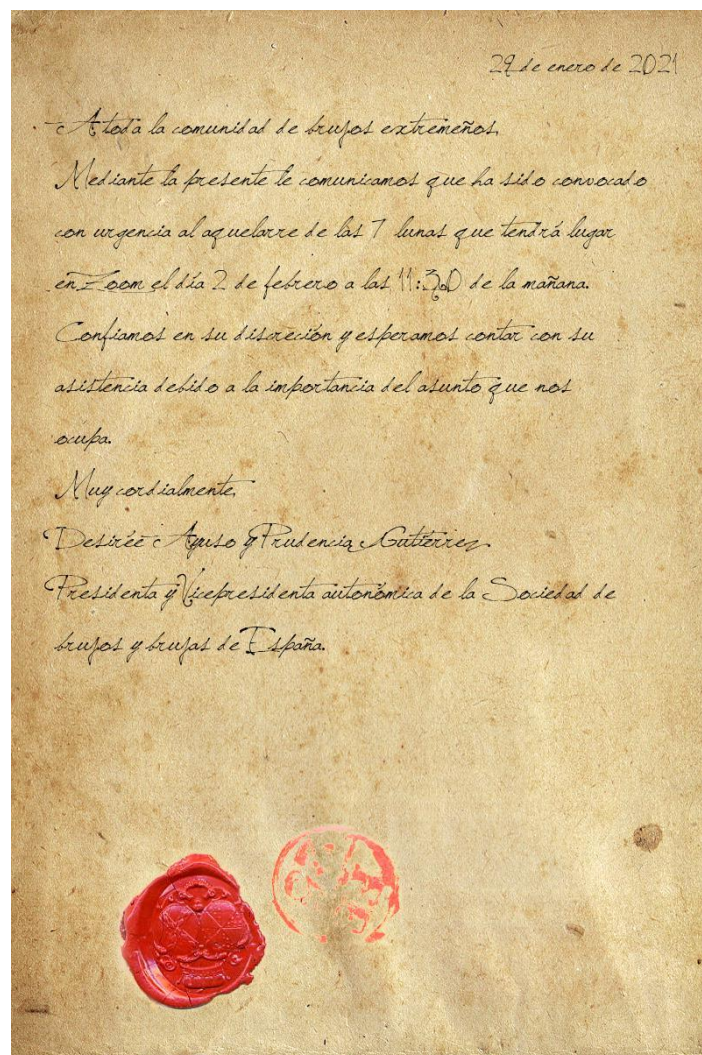 29 de enero de 2021
A toda la comunidad de brujos extremeños,
Mediante la presente le comunicamos que ha sido convocado
con urgencia al aquelarre de las 7 lunas que tendrá lugar
en Zoom el día 2 de febrero a las 11:30 de la mañana.
Confiamos en su discreción y esperamos contar con su
asistencia debido a la importancia del asunto que nos
ocupa.
Muy cordialmente,
Desirée Ayuso y Prudencia Gutiérrez
Presidenta y Vicepresidenta autonómica de la Sociedad de
brujos y brujas de España.